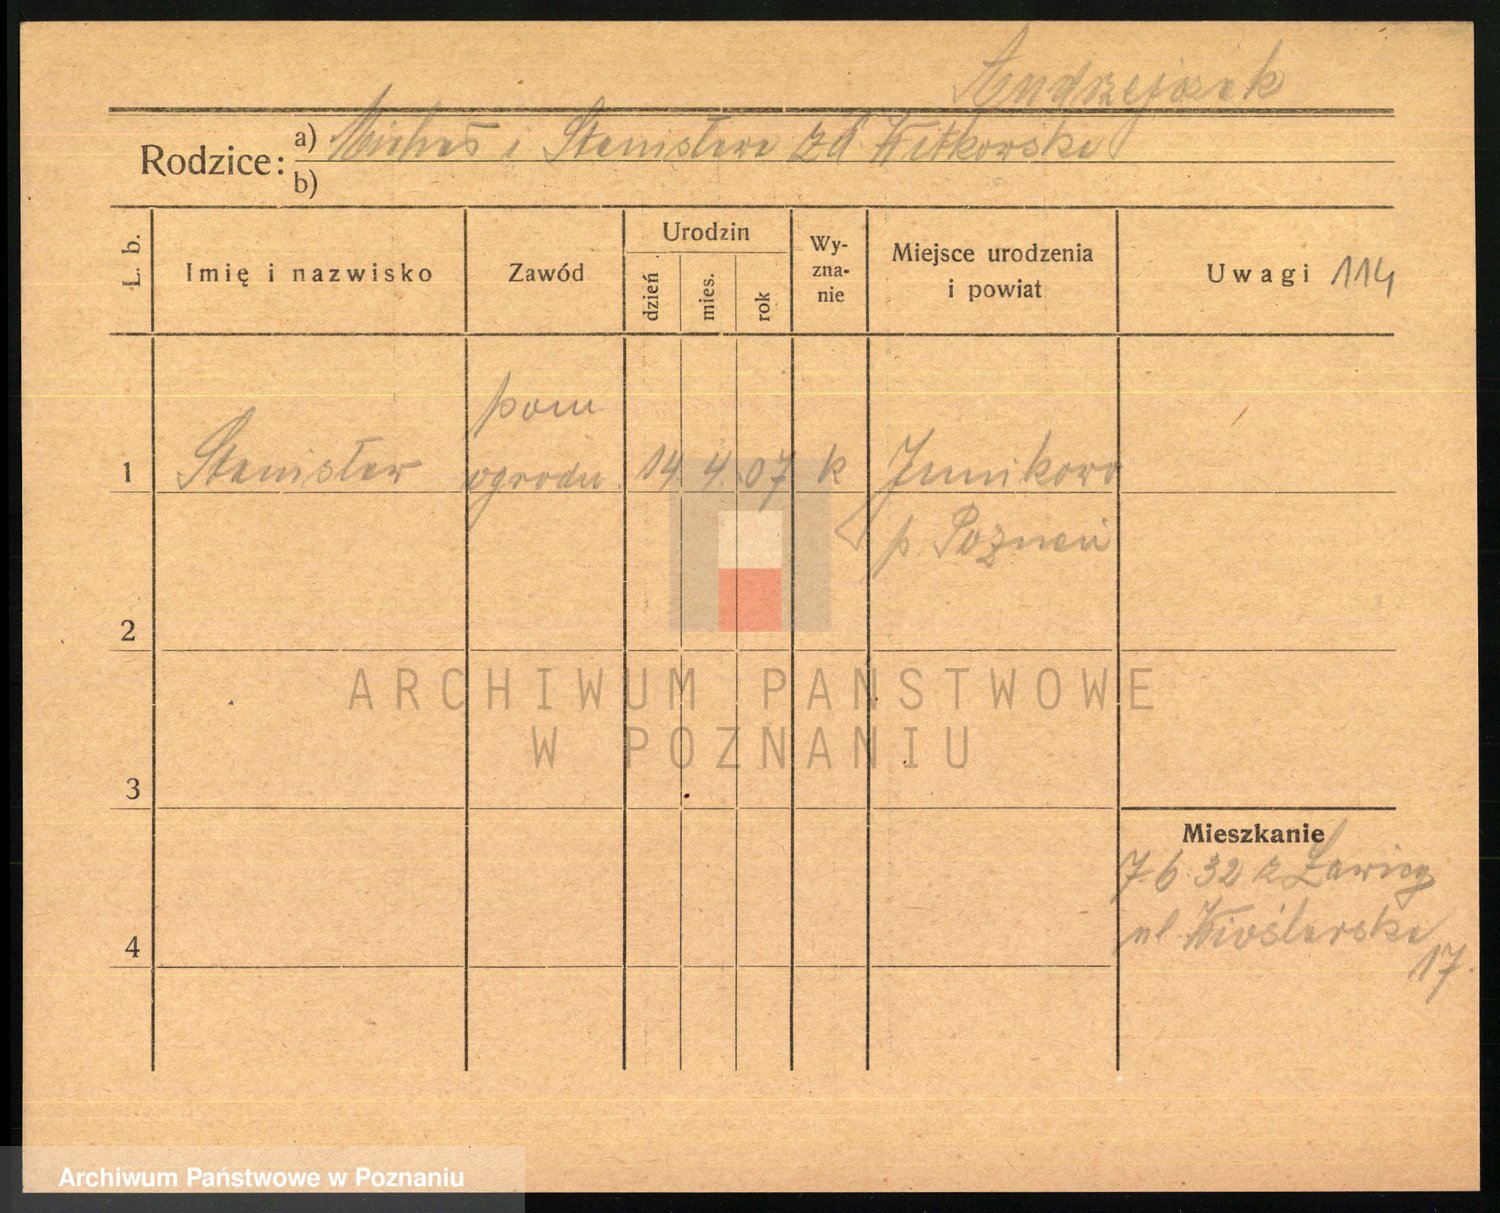 Andrzejczak
Rodzice: a) Michał i Stanisława zd. Witkowska
b)
L. b. Imię i nazwisko Zawód Urodzin dzień mies. rok Wyznanie Miejsce urodzenia i powiat Uwagi 114
pom
1 Stanisław ogrodn. 14. 4. 07 k Junikowo
p. Poznań
2
ARCHIWUM PAŃSTWOWE
W POZNANIU
3
Mieszkanie
7.6.32 z Ławicy
ul.
4
17.
Archiwum Państwowe w Poznaniu